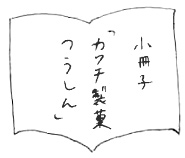 小冊子
「カワチ製菓
つうしん」